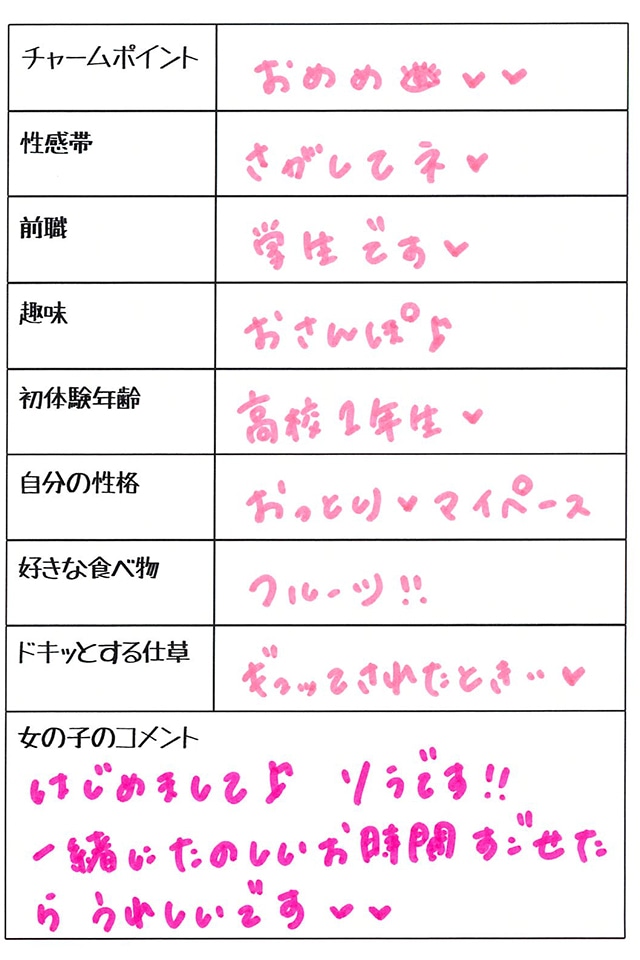 チャームポイント おめめ ♥ ♥
性感帯 さがしてネ ♥
前職 学生です ♥
趣味 おさんぽ♪
初体験年齢 高校2年生 ♥
自分の性格 おっとり ♥ マイペース
好きな食べ物 フルーツ!!
ドキッとする仕草 ギュッてされたとき‥ ♥
女の子のコメント
はじめまして♪ ソラです!!
一緒にたのしいお時間すごせた
ら うれしいです ♥ ♥